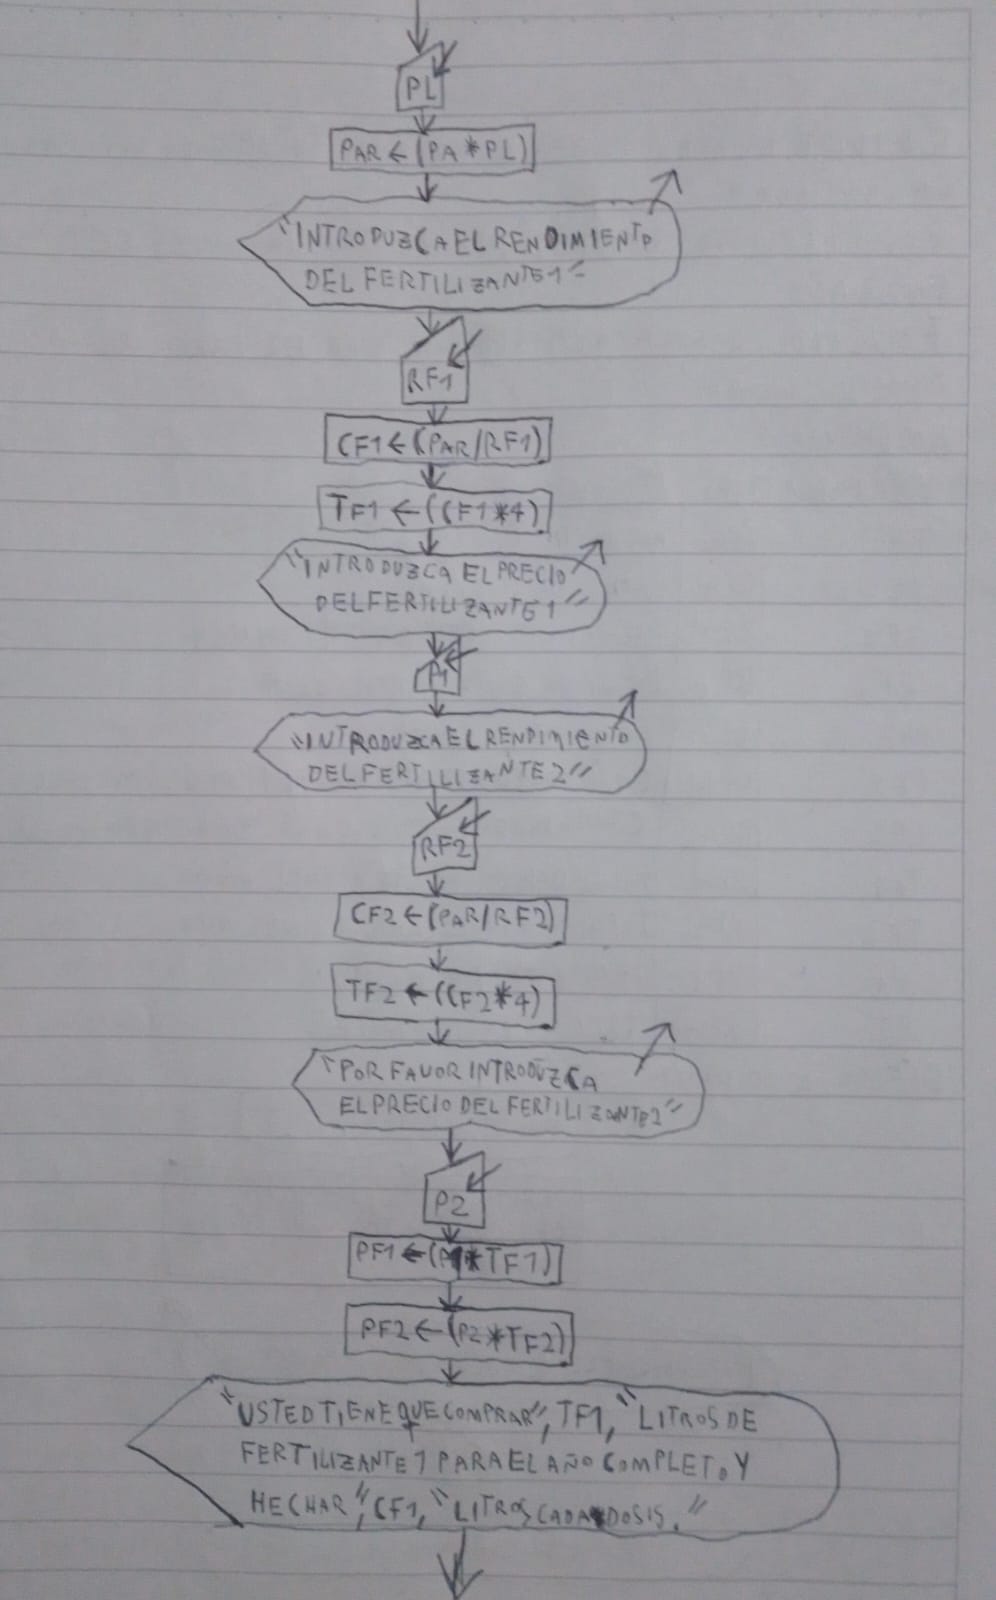 PL
PAR ← (PA * PL)
"INTRODUZCA EL RENDIMIENTO
DEL FERTILIZANTE 1"
RF1
CF1 ← (PAR/RF1)
TF1 ← (CF1*4)
"INTRODUZCA EL PRECIO
DEL FERTILIZANTE 1"
P1
"INTRODUZCA EL RENDIMIENTO
DEL FERTILIZANTE 2"
RF2
CF2 ← (PAR/RF2)
TF2 ← (CF2*4)
"POR FAVOR INTRODUZCA
EL PRECIO DEL FERTILIZANTE 2"
P2
PF1 ← (P1*TF1)
PF2 ← (P2*TF2)
"USTED TIENE QUE COMPRAR", TF1, "LITROS DE
FERTILIZANTE 1 PARA EL AÑO COMPLETO Y
HECHAR", CF1, "LITROS CADA DOSIS."